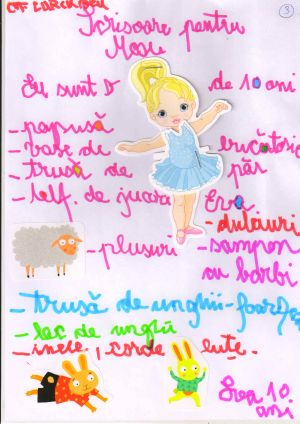 Scrisoare pentru
Moșu
3
Eu sunt D de 10 ani
- papușă
- babe de bucătărie
- trusă de păr
- telf. de jucări
- dulciuri
- plusuri - sampon
cu barbi
- trusă de unghii - foarfece
- lac de unghii
- inele, corde luțe.
10
ani